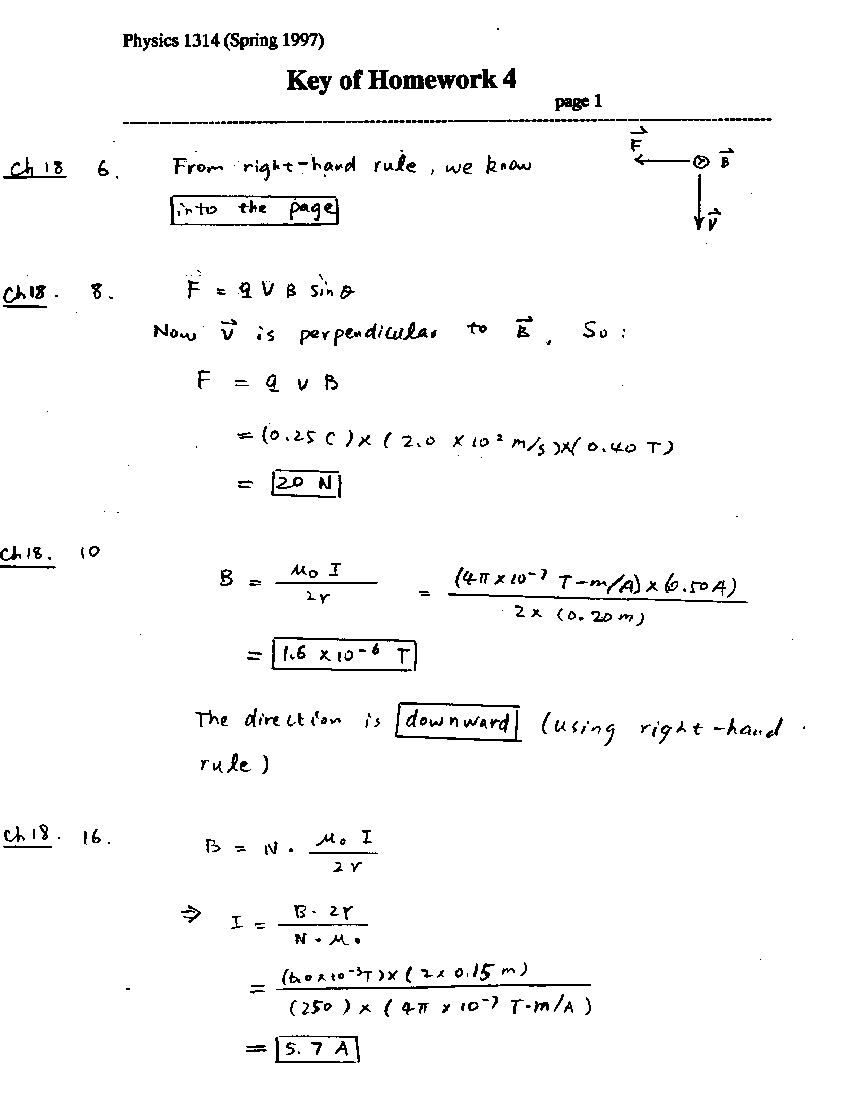 Physics 1314 (Spring 1997)
Key of Homework 4
page 1
Ch 18 6. From right-hand rule, we know
into the page
F⃗ ⊗ B⃗
V⃗
Ch 18. 8. F⃗ = q V B sin θ
Now V⃗ is perpendicular to B⃗, So:
F = q v B
= (0.25 C) × (2.0 × 10² m/s) × (0.40 T)
= 20 N
Ch 18. 10
B = μ₀ I / 2r = (4π × 10⁻⁷ T-m/A) × (0.50 A) / 2 × (0.20 m)
= 1.6 × 10⁻⁶ T
The direction is downward (using right-hand
rule)
Ch 18. 16. B = N · μ₀ I / 2r
⇒ I = B · 2r / N · μ₀
= (6.0 × 10⁻³ T) × (2 × 0.15 m) / (250) × (4π × 10⁻⁷ T·m/A)
= 5.7 A